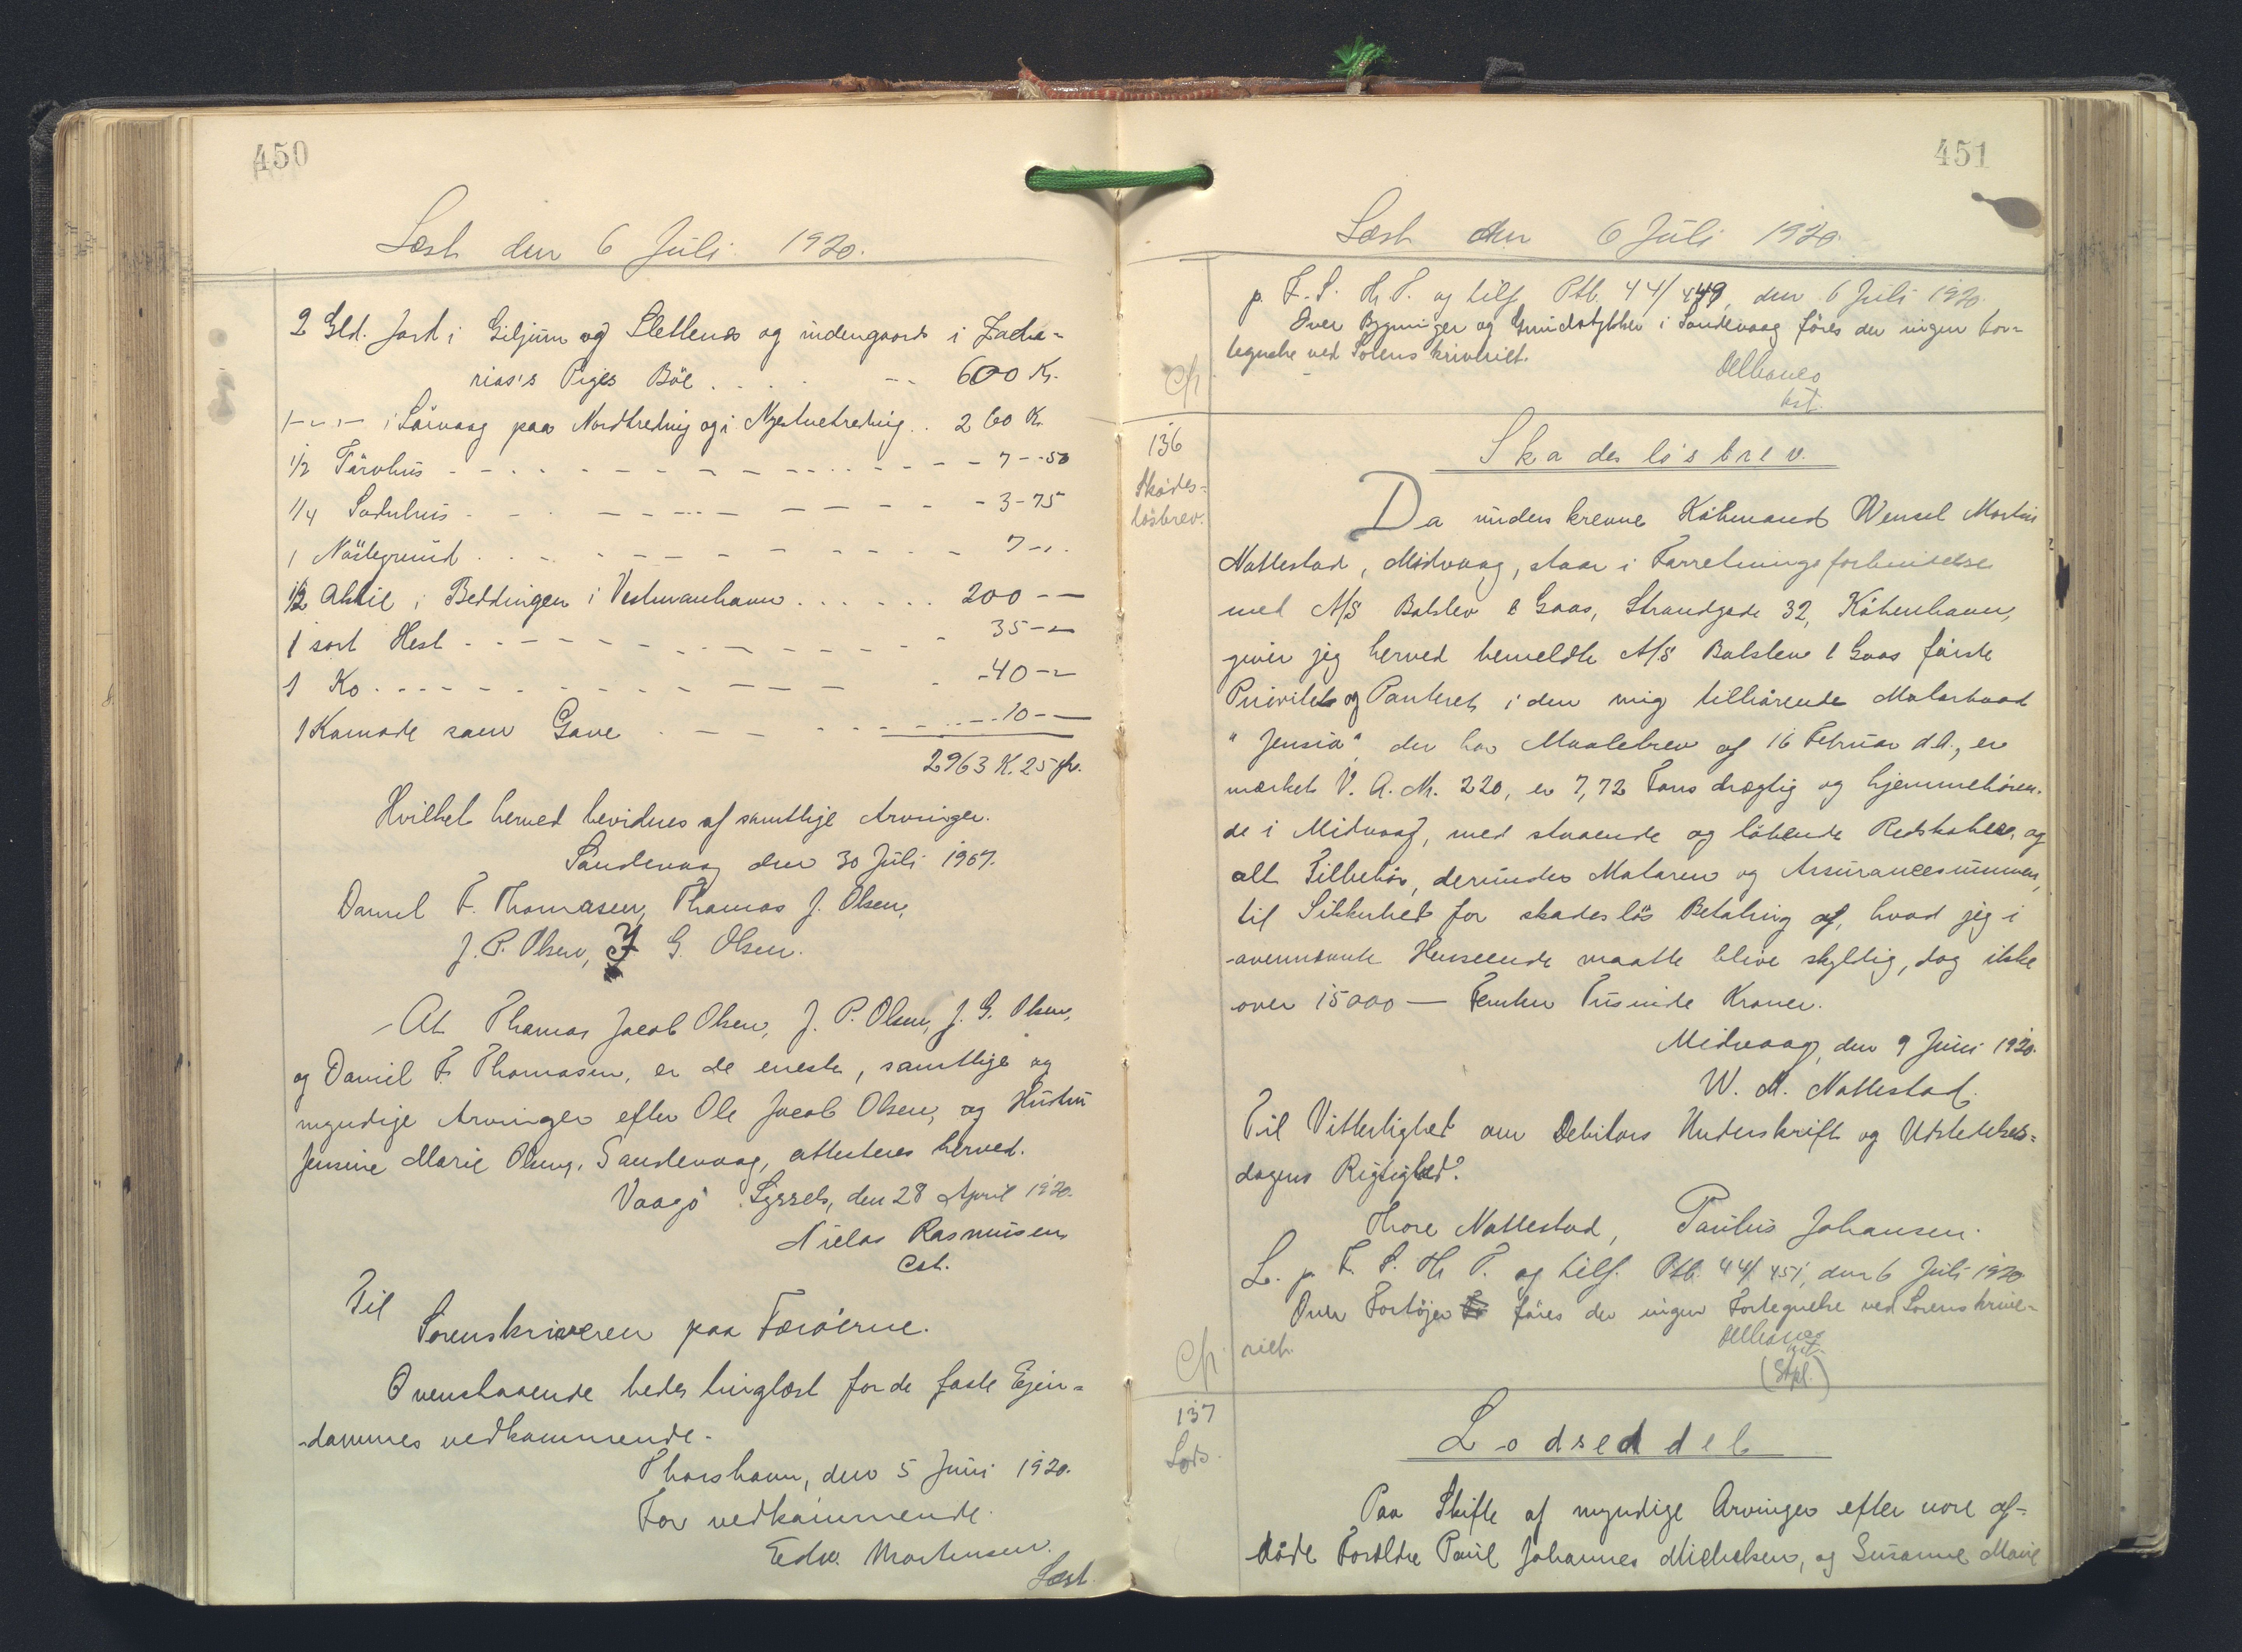 450
Læst den 6 Juli 1920.
2 Gld. Jord i Giljum og Slettenes og indengaards i Zacha-
rias's Piges Böe . . . . -- 600 Kr.
1 - " - i Sörvaag paa Nordtreding og i Nyestuetreding . . 260 Kr.
1/2 Törvhus - - - - 7 - - 50
1/4 Sodnhus - - - - 3 - 75
1 Nöstegrund . . - - - 7 - " .
1/2 Aktie i Beddingen i Vestmanhavn . . . . . . 200 - -
1 sort Hest - - - - 35 - "
1 Ko . . . - - - 40 - "
1 Komode som Gave - - - - 10 - -
2963 K. 25 Ør.
Hvilket herved bevidnes af samtlige Arvinger.
Sandevaag den 30 Juli 1907.
Daniel F. Thomasen, Thomas J. Olsen,
J. P. Olsen, J G. Olsen.
At Thomas Jacob Olsen, J. P. Olsen, J. G. Olsen,
og Daniel F. Thomasen, er de eneste, samtlige og
myndige Arvinger efter Ole Jacob Olsen, og Hustru
Jensine Marie Olseng, Sandevaag, attesteres herved.
Vaagö Syssels, den 28 April 1920.
Nielas Rasmussen
cst.
Til
Sorenskriveren paa Færöerne.
Ovenstaaende bedes tinglæst for de faste Ejen-
dommes vedkommende.
Thorshavn, den 5 Juni 1920.
For vedkommende.
Edw. Mortensen.
Læst.
451
Læst den 6 Juli 1920.
p. F. S. Hr. T. og tilf Ptb. 44/449, den 6 Juli 1920.
Over Bygninger og Grundstykker i Sandevaag föres der ingen For-
tegnelse ved Sorenskriveriet.
cst.
Cfr
136
Skades-
lösbrev.
Skadeslösbrev.
Da underskrevne Köbmand Wensel Martin
Nattestad, Midvaag, staar i Forretningsforbindelse
med A/S Balslev & Gaas, Strandgade 32, Köbenhavn,
giver jeg herved bemeldte A/S Balslev & Gaas förste
Prioritets og Panteret i den mig tilhörende Motorbaad
"Jensia" der har Maalebrev af 16 Februar d.A., er
mærket V. A. Nr. 220, er 7,72 Tons drægtig og hjemmehören-
de i Midvaag, med staaende og löbende Redskaber, og
alt Tilbehör, derunder Motoren og Assurancesummen,
til Sikkerhed for skadeslös Betaling af, hvad jeg i
ovennævnte Henseende maatte blive skyldig, dog ikke
over 15000 — Femten Tusinde Kroner.
Midvaag, den 9 Juni 1920.
W. M. Nattestad.
Til Vitterlighed om Debitors Underskrift og Udstedelses-
dagens Rigtighed.
Thore Nattestad, Paulus Johansen.
L. p. F. S. Hr T. og tilf. Ptb. 44/451, den 6 Juli 1920
Over Fartöjer föres der ingen Fortegnelse ved Sorenskrive-
riet.
cst.
(Stpl.)
Cfr.
137
Lods.
Lodseddel
Paa Skifte af myndige Arvinger efter vore af-
döde Forældre Poul Johannes Michelsen, og Susanne Marie